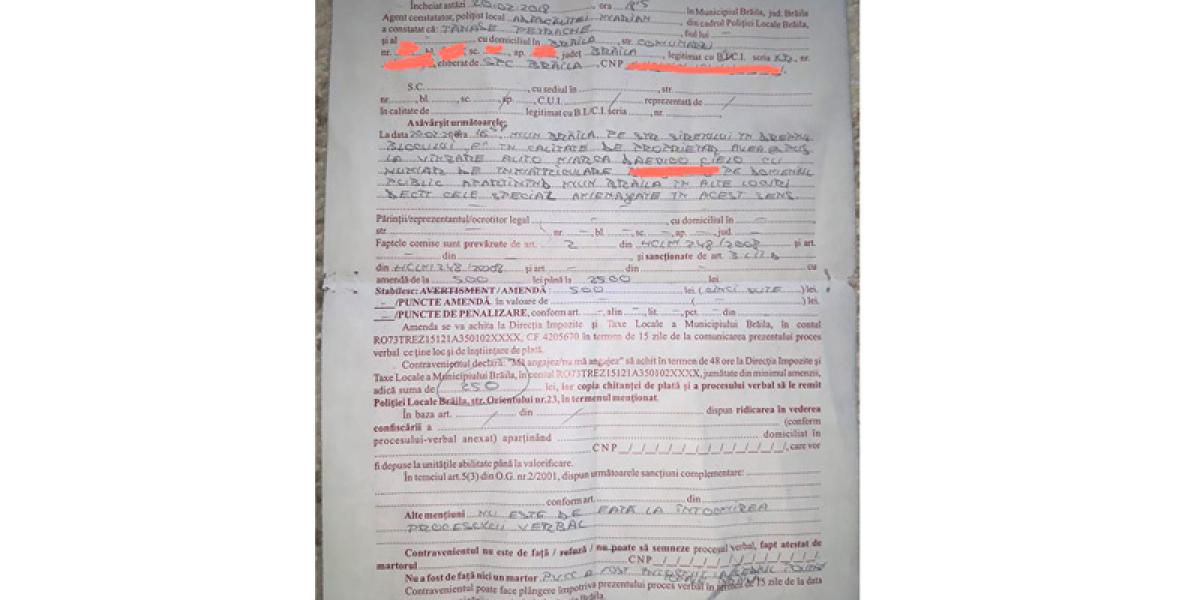 Încheiat astăzi 20.02.2018, ora în Municipiul Brăila, jud. Brăila
Agent constatator, polițist local din cadrul Poliției Locale Brăila,
a constatat că: TANASE PETRACHE, fiul lui
și al cu domiciliul în BRĂILA, str. COMUNARI
nr. , bl. , sc. , ap. , județ BRĂILA, legitimat cu B.I/C.I. seria , nr.
, eliberat de SPC BRĂILA, CNP
S.C. , cu sediul în , str.
nr. , bl. , sc. , ap. , C.U.I. reprezentată de
în calitate de legitimat cu B.I./C.I. seria , nr.
A săvârșit următoarele:
La data 20.02 MUN BRĂILA PE STR SIRETULUI IN DREPTUL
BLOCULUI IN CALITATE DE PROPRIETAR AVEA PUS
LA VINZARE AUTO MARCA DAEWOO CIELO CU
NUMAR DE INMATRICULARE PE DOMENIUL
PUBLIC APARTININD MUN BRĂILA IN ALTE LOCURI
DECIT CELE SPECIAL AMENAJATE IN ACEST SENS.
Părinții/reprezentantul/ocrotitor legal - , cu domiciliul în -
str - nr. - , bl - , sc. - , ap - , jud -
Faptele comise sunt prevăzute de art. 2 din HCLM 248/2008 și art.
- din - , și sancționate de art. 3
din HCLM 248/2008 și art - din - cu
amendă de la 500 lei până la 2500 lei
Stabilesc: AVERTISMENT / AMENDĂ : 500 lei ( CINCI SUTE ) lei.
- /PUNCTE AMENDĂ, în valoare de - ( - ) lei.
- /PUNCTE DE PENALIZARE, conform art. - , alin - , lit. - , pct. - din -
Amenda se va achita la Direcția Impozite și Taxe Locale a Municipiului Brăila, în contul
RO73TREZ15121A350102XXXX, CF 4205670 în termen de 15 zile de la comunicarea prezentului proces
verbal ce ține loc și de înștiințare de plată.
Contravenientul declară: "Mă angajez/nu mă angajez" să achit în termen de 48 ore la Direcția Impozite și
Taxe Locale a Municipiului Brăila, în contul RO73TREZ15121A350102XXXX, jumătate din minimul amenzii,
adică suma de 250 lei, iar copia chitanței de plată și a procesului verbal să le remit
Poliției Locale Brăila, str. Orientului nr.23, în termenul menționat.
În baza art. din dispun ridicarea în vederea
confiscării a (conform
procesului-verbal anexat) aparținând domiciliat în
CNP / / / / / / / / / / / / /, care vor
fi depuse la unitățile abilitate până la valorificare.
În temeiul art.5(3) din O.G. nr.2/2001, dispun următoarele sancțiuni complementare:
conform art. din
Alte mențiuni NU ESTE DE FAȚĂ LA ÎNTOCMIREA
PROCESULUI VERBAL
Contravenientul nu este de față / refuză / nu poate să semneze procesul verbal, fapt atestat de
martorul CNP / / / / / / / / / / / / /
Nu a fost de față nici un martor
Contravenientul poate face plângere împotriva prezentului proces verbal în termen de 15 zile de la data